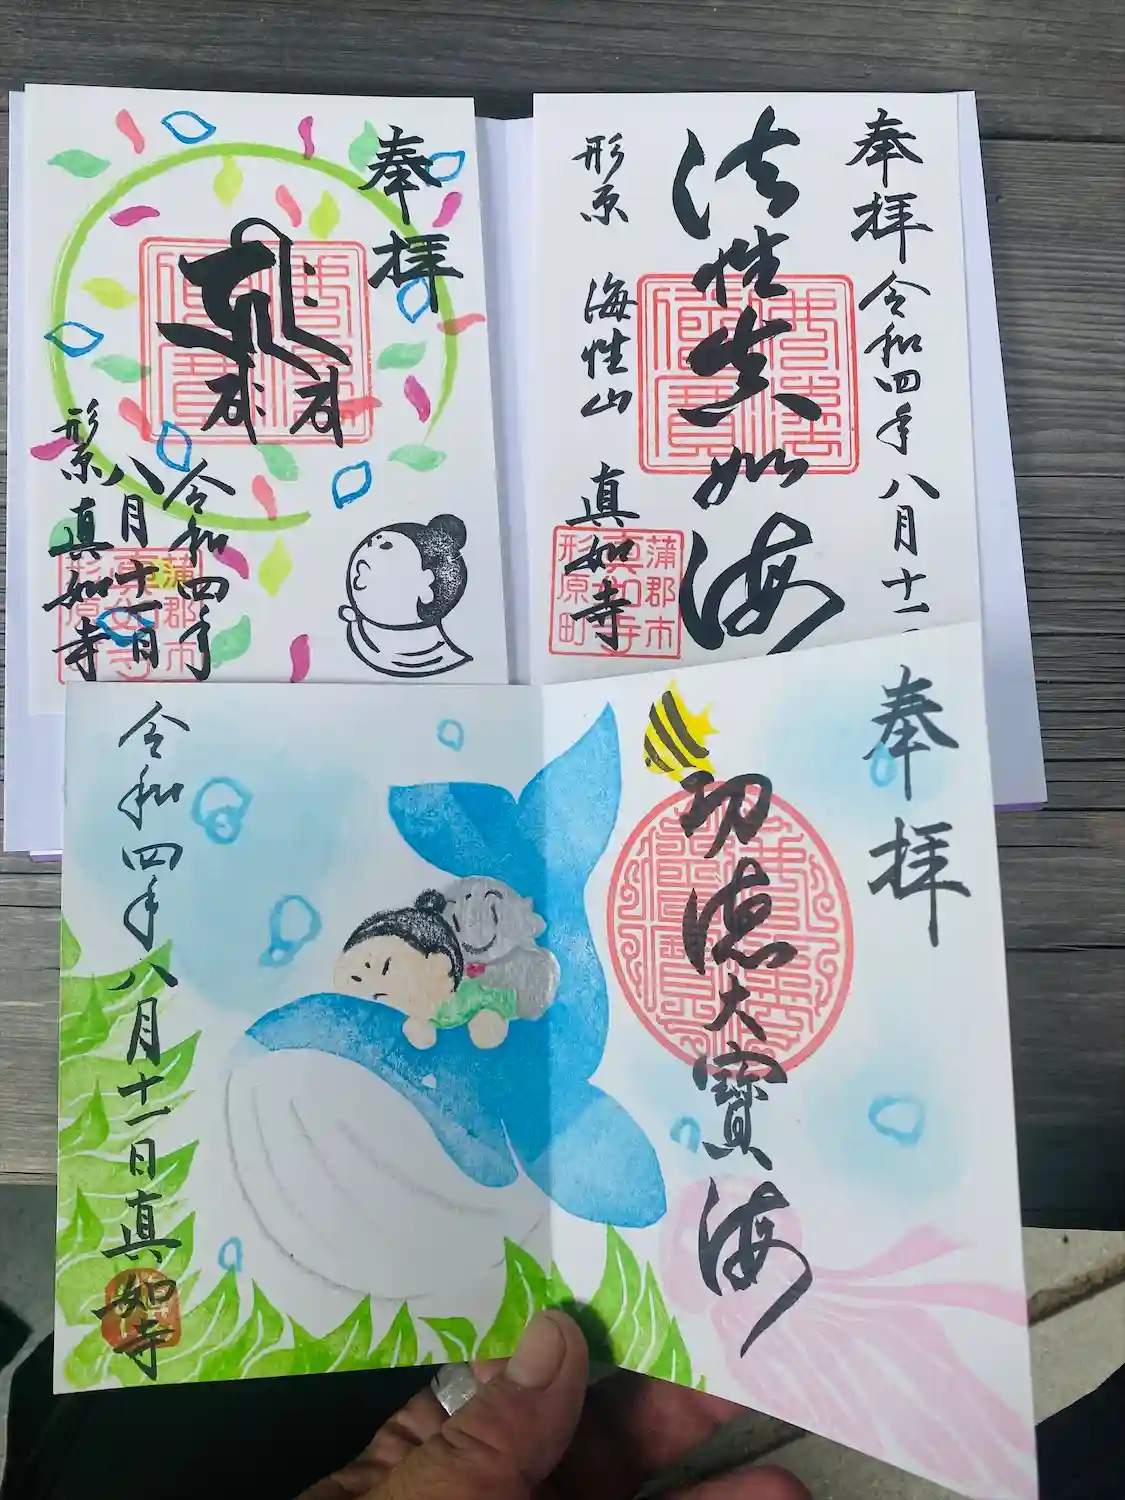 奉拝
令和四年
八月十一日
形原 真如寺
蒲郡市
真如寺
形原町
奉拝 令和四年八月十一
法性真如海
形原 海性山 真如寺
佛法僧寶
蒲郡市
真如寺
形原町
奉拝
功徳大寶海
令和四年八月十一日 真如寺